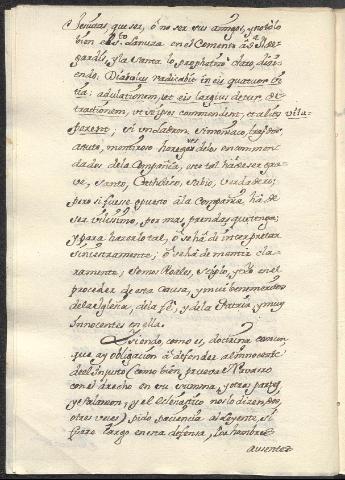 Senidas, que ser, ó no ser sus amigos, y notólo
bien el P.to Lanuza en el Coment.o à S.ta Ilde-
gardis, y la Santa lo prophetizó claro, dici-
endo: Diabolus radicabit in eis quatuor vi-
tia: adulationem, ut eis largius detur, de-
tractionem, ut se ipsos commendent, et alios vitu-
perent; si un ladron, simoniaco, traydor,
astuto, mentiroso, herege es de los encommen-
dados de la Compañia, este tal ha de ser gra-
ve, Santo, Catholico, sabio, verdadero;
pero si fuese opuesto à la Compañia ha de
ser vilissimo, por mas prendas que tenga;
y para hacerlo tal, ó se há de interpretar
siniestramente, ó se há de mentir cla-
ramente; somos Reales, y en el
proceder de esta Causa, y mui benemeritos
de la Iglesia, de la fé, y de la Patria, y muy
innocentes en ella.
Y siendo, como es, doctrina comun,
que ay obligación à defender al innocente
de el injusto (como bien prueba el Navarro
con el derecho en su summa, y otras partes,
y Salomon, y el Eclesiastico nos lo dizen dos,
otras veces) pido paciencia al Leyente, si
fuere largo en esta defensa, los hombres
ausentes